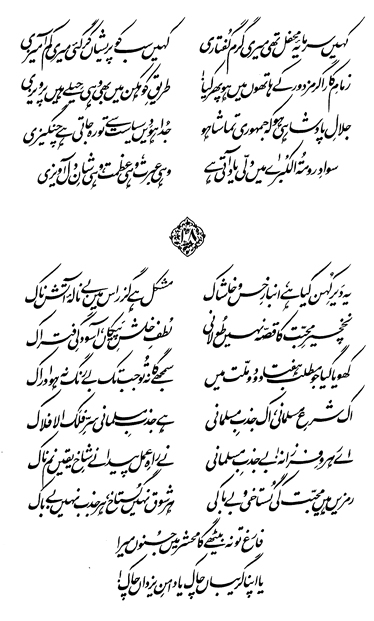 کہیں سرمایۂ محفل تھی میری گرم گفتاری
کہیں سب کو پریشاں کر گئی میری کم آمیزی
زمامِ کار اگر مزدور کے ہاتھوں میں ہو پھر کیا!
طریقِ کوہکن میں بھی وہی حیلے ہیں پرویزی
جلالِ پادشاہی ہو کہ جمہوری تماشا ہو
جدا ہو دیں سیاست سے تو رہ جاتی ہے چنگیزی
سوادِ رومۃ الکبریٰ میں دلّی یاد آتی ہے
وہی عبرت وہی عظمت وہی شانِ دل آویزی
۲۸
یہ دیرِ کہن کیا ہے انبارِ خس و خاشاک
مشکل ہے گزر اس میں بے نالۂ آتش ناک
نخچیرِ محبت کا قصہ نہیں طولانی
لطفِ خلشِ پیکاں آسودگیِ فتراک
کھویا گیا جو مطلب ہفتاد و دو ملت میں
سمجھے گا نہ تو جب تک بے رنگ نہ ہو ادراک
اک شرعِ مسلمانی اک جذبِ مسلمانی
ہے جذبِ مسلمانی سرِّ فلک الافلاک
اے رہروِ فرزانہ بے جذبِ مسلمانی
نے راہِ عمل پیدا نے شاخِ یقیں نم ناک
رمزیں ہیں محبت کی گستاخی و بے باکی
ہر شوق نہیں گستاخ ہر جذب نہیں بے باک
فارغ تو نہ بیٹھے گا محشر میں جنوں میرا
یا اپنا گریباں چاک یا دامنِ یزداں چاک!